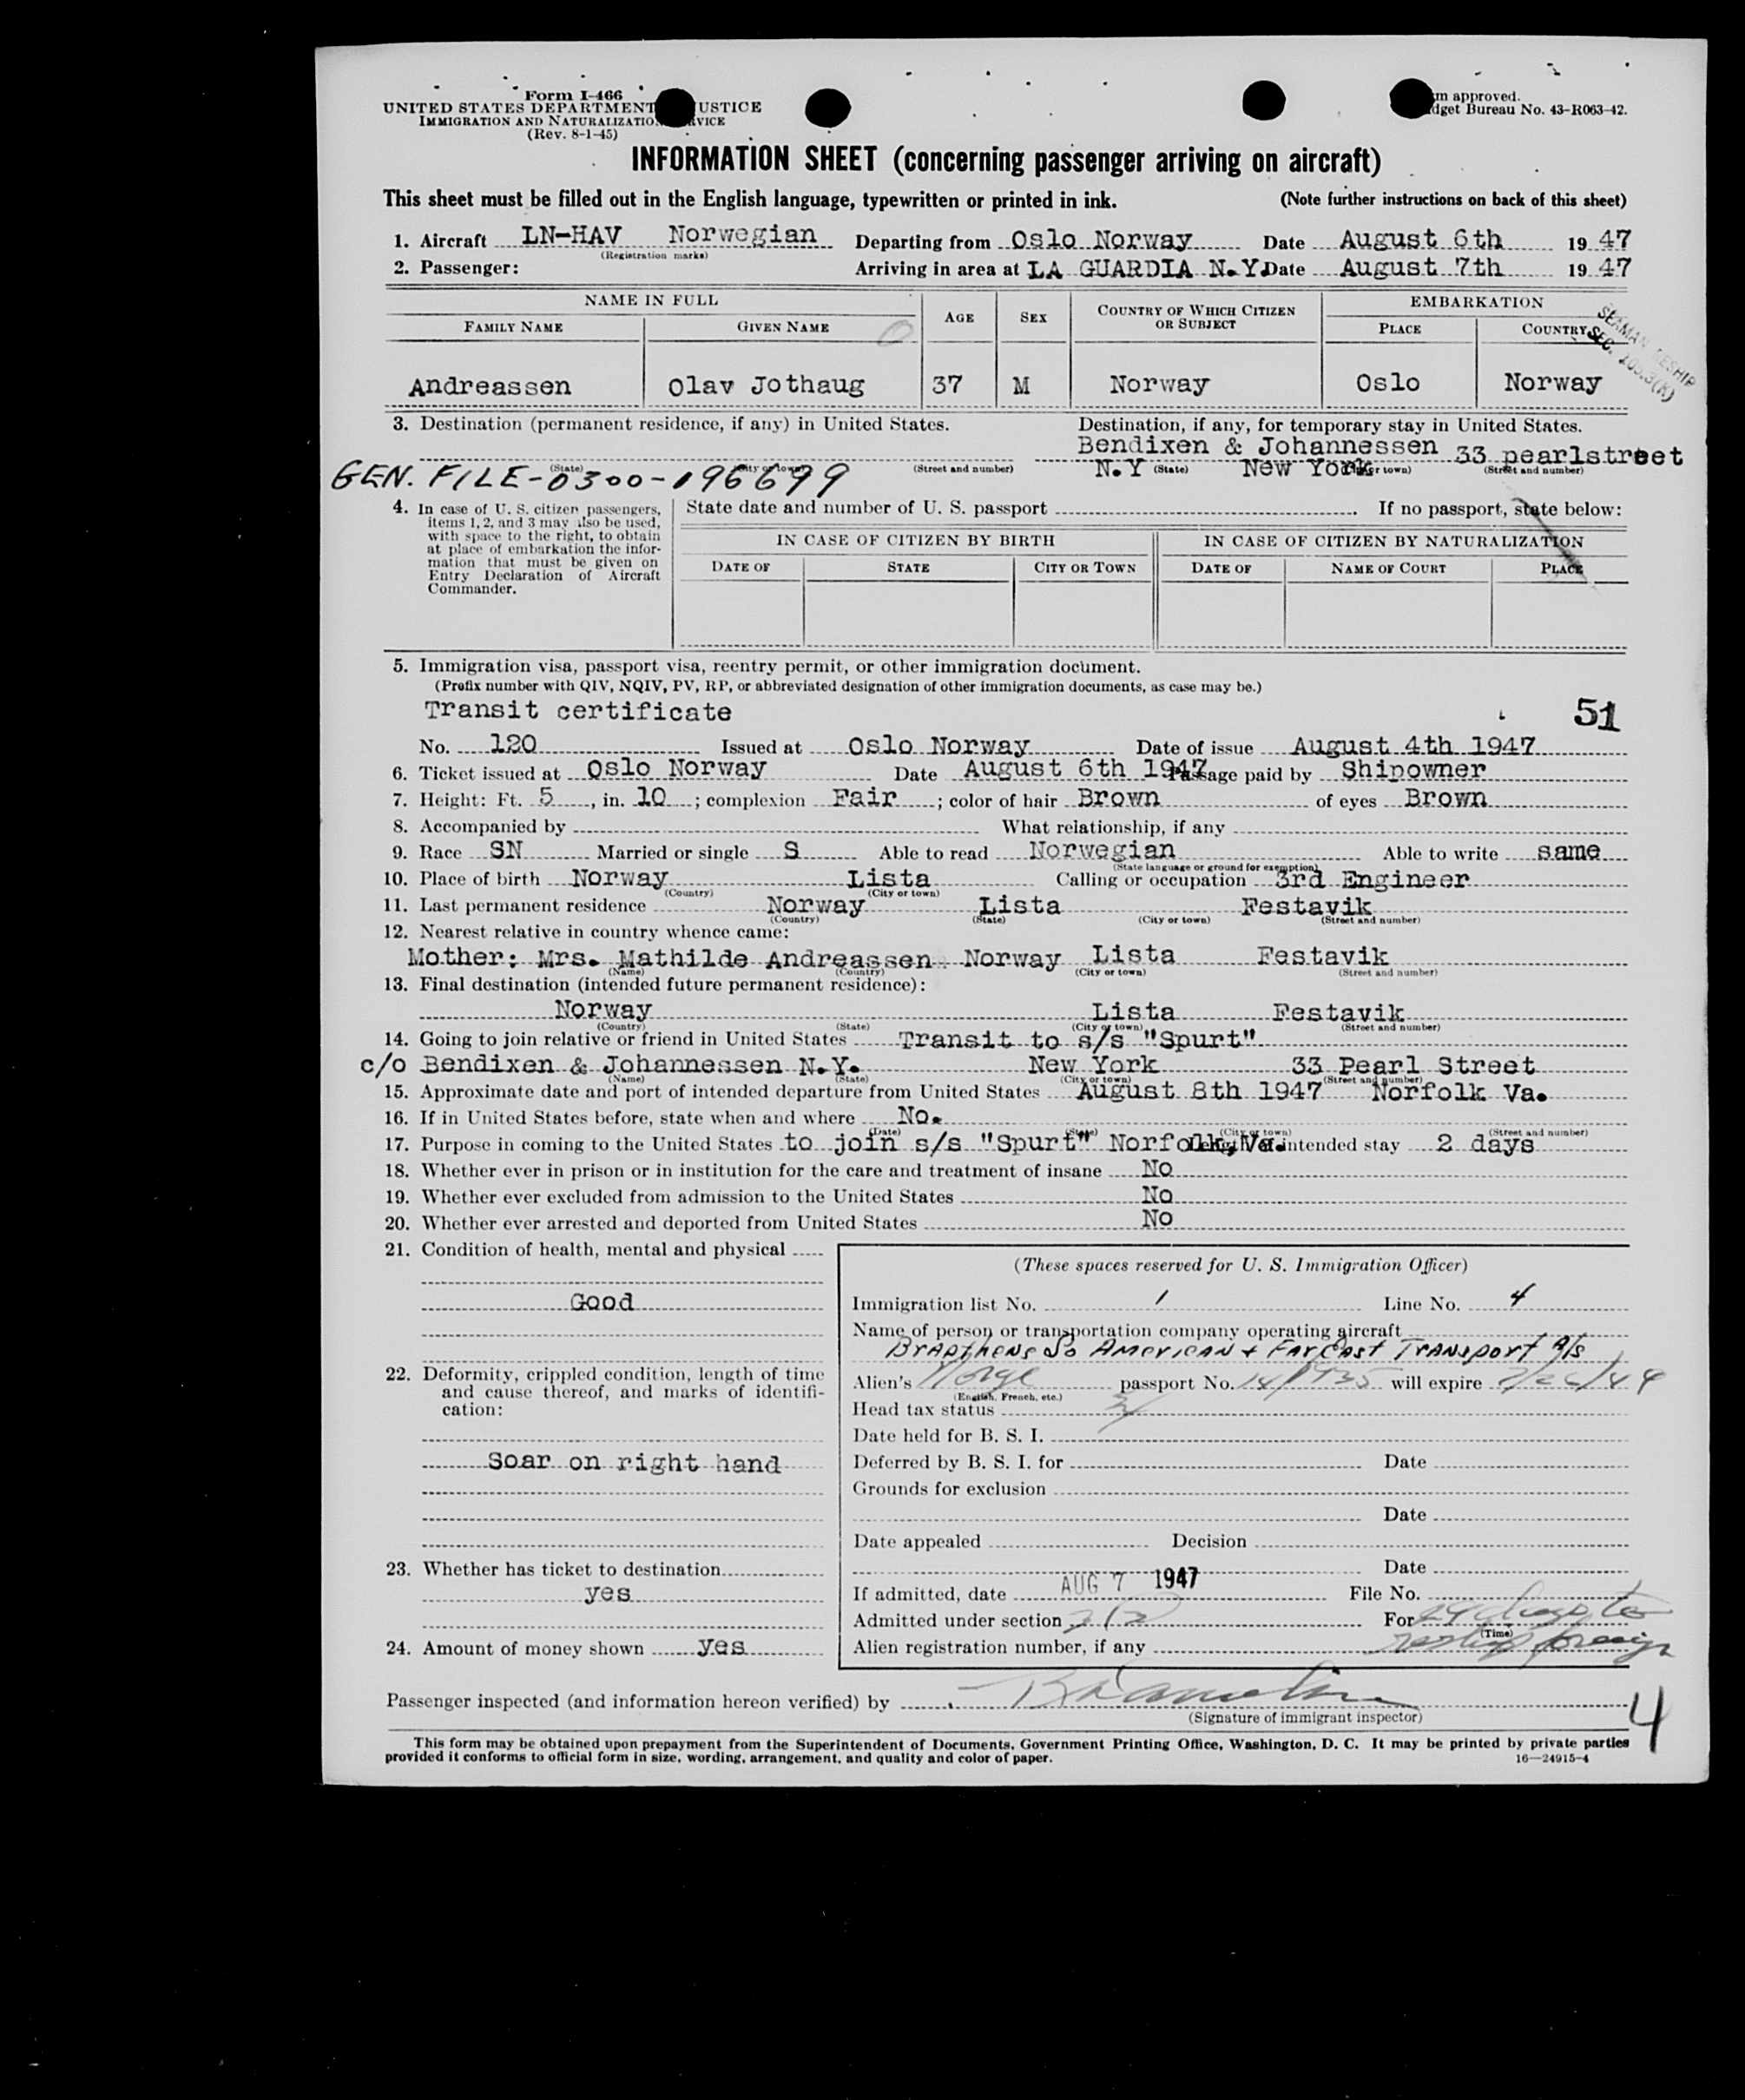 Form I-466
UNITED STATES DEPARTMENT USTICE
IMMIGRATION AND NATURALIZATIO RVICE
(Rev. 8-1-45)
m approved.
dget Bureau No. 43-R063-42.
INFORMATION SHEET (concerning passenger arriving on aircraft)
This sheet must be filled out in the English language, typewritten or printed in ink. (Note further instructions on back of this sheet)
1. Aircraft LN-HAV Norwegian Departing from Oslo Norway Date August 6th 19 47
(Registration marks)
2. Passenger: Arriving in area at LA GUARDIA N.Y. Date August 7th 19 47
NAME IN FULL AGE SEX COUNTRY OF WHICH CITIZEN OR SUBJECT EMBARKATION
FAMILY NAME GIVEN NAME PLACE COUNTRY
SEAMAN RESHIP
SEC.
Andreassen Olav Jothaug 37 M Norway Oslo Norway
3. Destination (permanent residence, if any) in United States. Destination, if any, for temporary stay in United States.
Bendixen & Johannessen 33 pearlstreet
N.Y New York
(State) (City or town) (Street and number) (State) (City or town) (Street and number)
GEN. FILE-0300-196699
4. In case of U. S. citizen passengers, items 1, 2, and 3 may also be used, with space to the right, to obtain at place of embarkation the information that must be given on Entry Declaration of Aircraft Commander.
State date and number of U. S. passport If no passport, state below:
IN CASE OF CITIZEN BY BIRTH IN CASE OF CITIZEN BY NATURALIZATION
DATE OF STATE CITY OR TOWN DATE OF NAME OF COURT PLACE
5. Immigration visa, passport visa, reentry permit, or other immigration document.
(Prefix number with QIV, NQIV, PV, RP, or abbreviated designation of other immigration documents, as case may be.)
Transit certificate 51
No. 120 Issued at Oslo Norway Date of issue August 4th 1947
6. Ticket issued at Oslo Norway Date August 6th 1947 Passage paid by Shipowner
7. Height: Ft. 5, in. 10; complexion Fair; color of hair Brown of eyes Brown
8. Accompanied by What relationship, if any
9. Race SN Married or single S Able to read Norwegian Able to write same
(State language or ground for exemption)
10. Place of birth Norway Lista Calling or occupation 3rd Engineer
(Country) (City or town)
11. Last permanent residence Norway Lista Festavik
(Country) (State) (City or town) (Street and number)
12. Nearest relative in country whence came:
Mother: Mrs. Mathilde Andreassen Norway Lista Festavik
(Name) (Country) (City or town) (Street and number)
13. Final destination (intended future permanent residence):
Norway Lista Festavik
(Country) (State) (City or town) (Street and number)
14. Going to join relative or friend in United States Transit to s/s "Spurt"
c/o Bendixen & Johannessen N.Y. New York 33 Pearl Street
(Name) (State) (City or town) (Street and number)
15. Approximate date and port of intended departure from United States August 8th 1947 Norfolk Va.
16. If in United States before, state when and where No.
(Date) (State) (City or town) (Street and number)
17. Purpose in coming to the United States to join s/s "Spurt" Norfolk, Va. intended stay 2 days
18. Whether ever in prison or in institution for the care and treatment of insane No
19. Whether ever excluded from admission to the United States No
20. Whether ever arrested and deported from United States No
21. Condition of health, mental and physical
Good
22. Deformity, crippled condition, length of time and cause thereof, and marks of identification:
Soar on right hand
23. Whether has ticket to destination
yes
24. Amount of money shown yes
(These spaces reserved for U. S. Immigration Officer)
Immigration list No. 1 Line No. 4
Name of person or transportation company operating aircraft
So American & Far East Transport A/S
Alien's Norge passport No. will expire
(English, French, etc.)
Head tax status
Date held for B. S. I.
Deferred by B. S. I. for Date
Grounds for exclusion
Date
Date appealed Decision
Date
If admitted, date AUG 7 1947 File No.
Admitted under section 3(2) For
(Time)
Alien registration number, if any
Passenger inspected (and information hereon verified) by
(Signature of immigrant inspector)
4
This form may be obtained upon prepayment from the Superintendent of Documents, Government Printing Office, Washington, D. C. It may be printed by private parties
provided it conforms to official form in size, wording, arrangement, and quality and color of paper. 16—24915-4